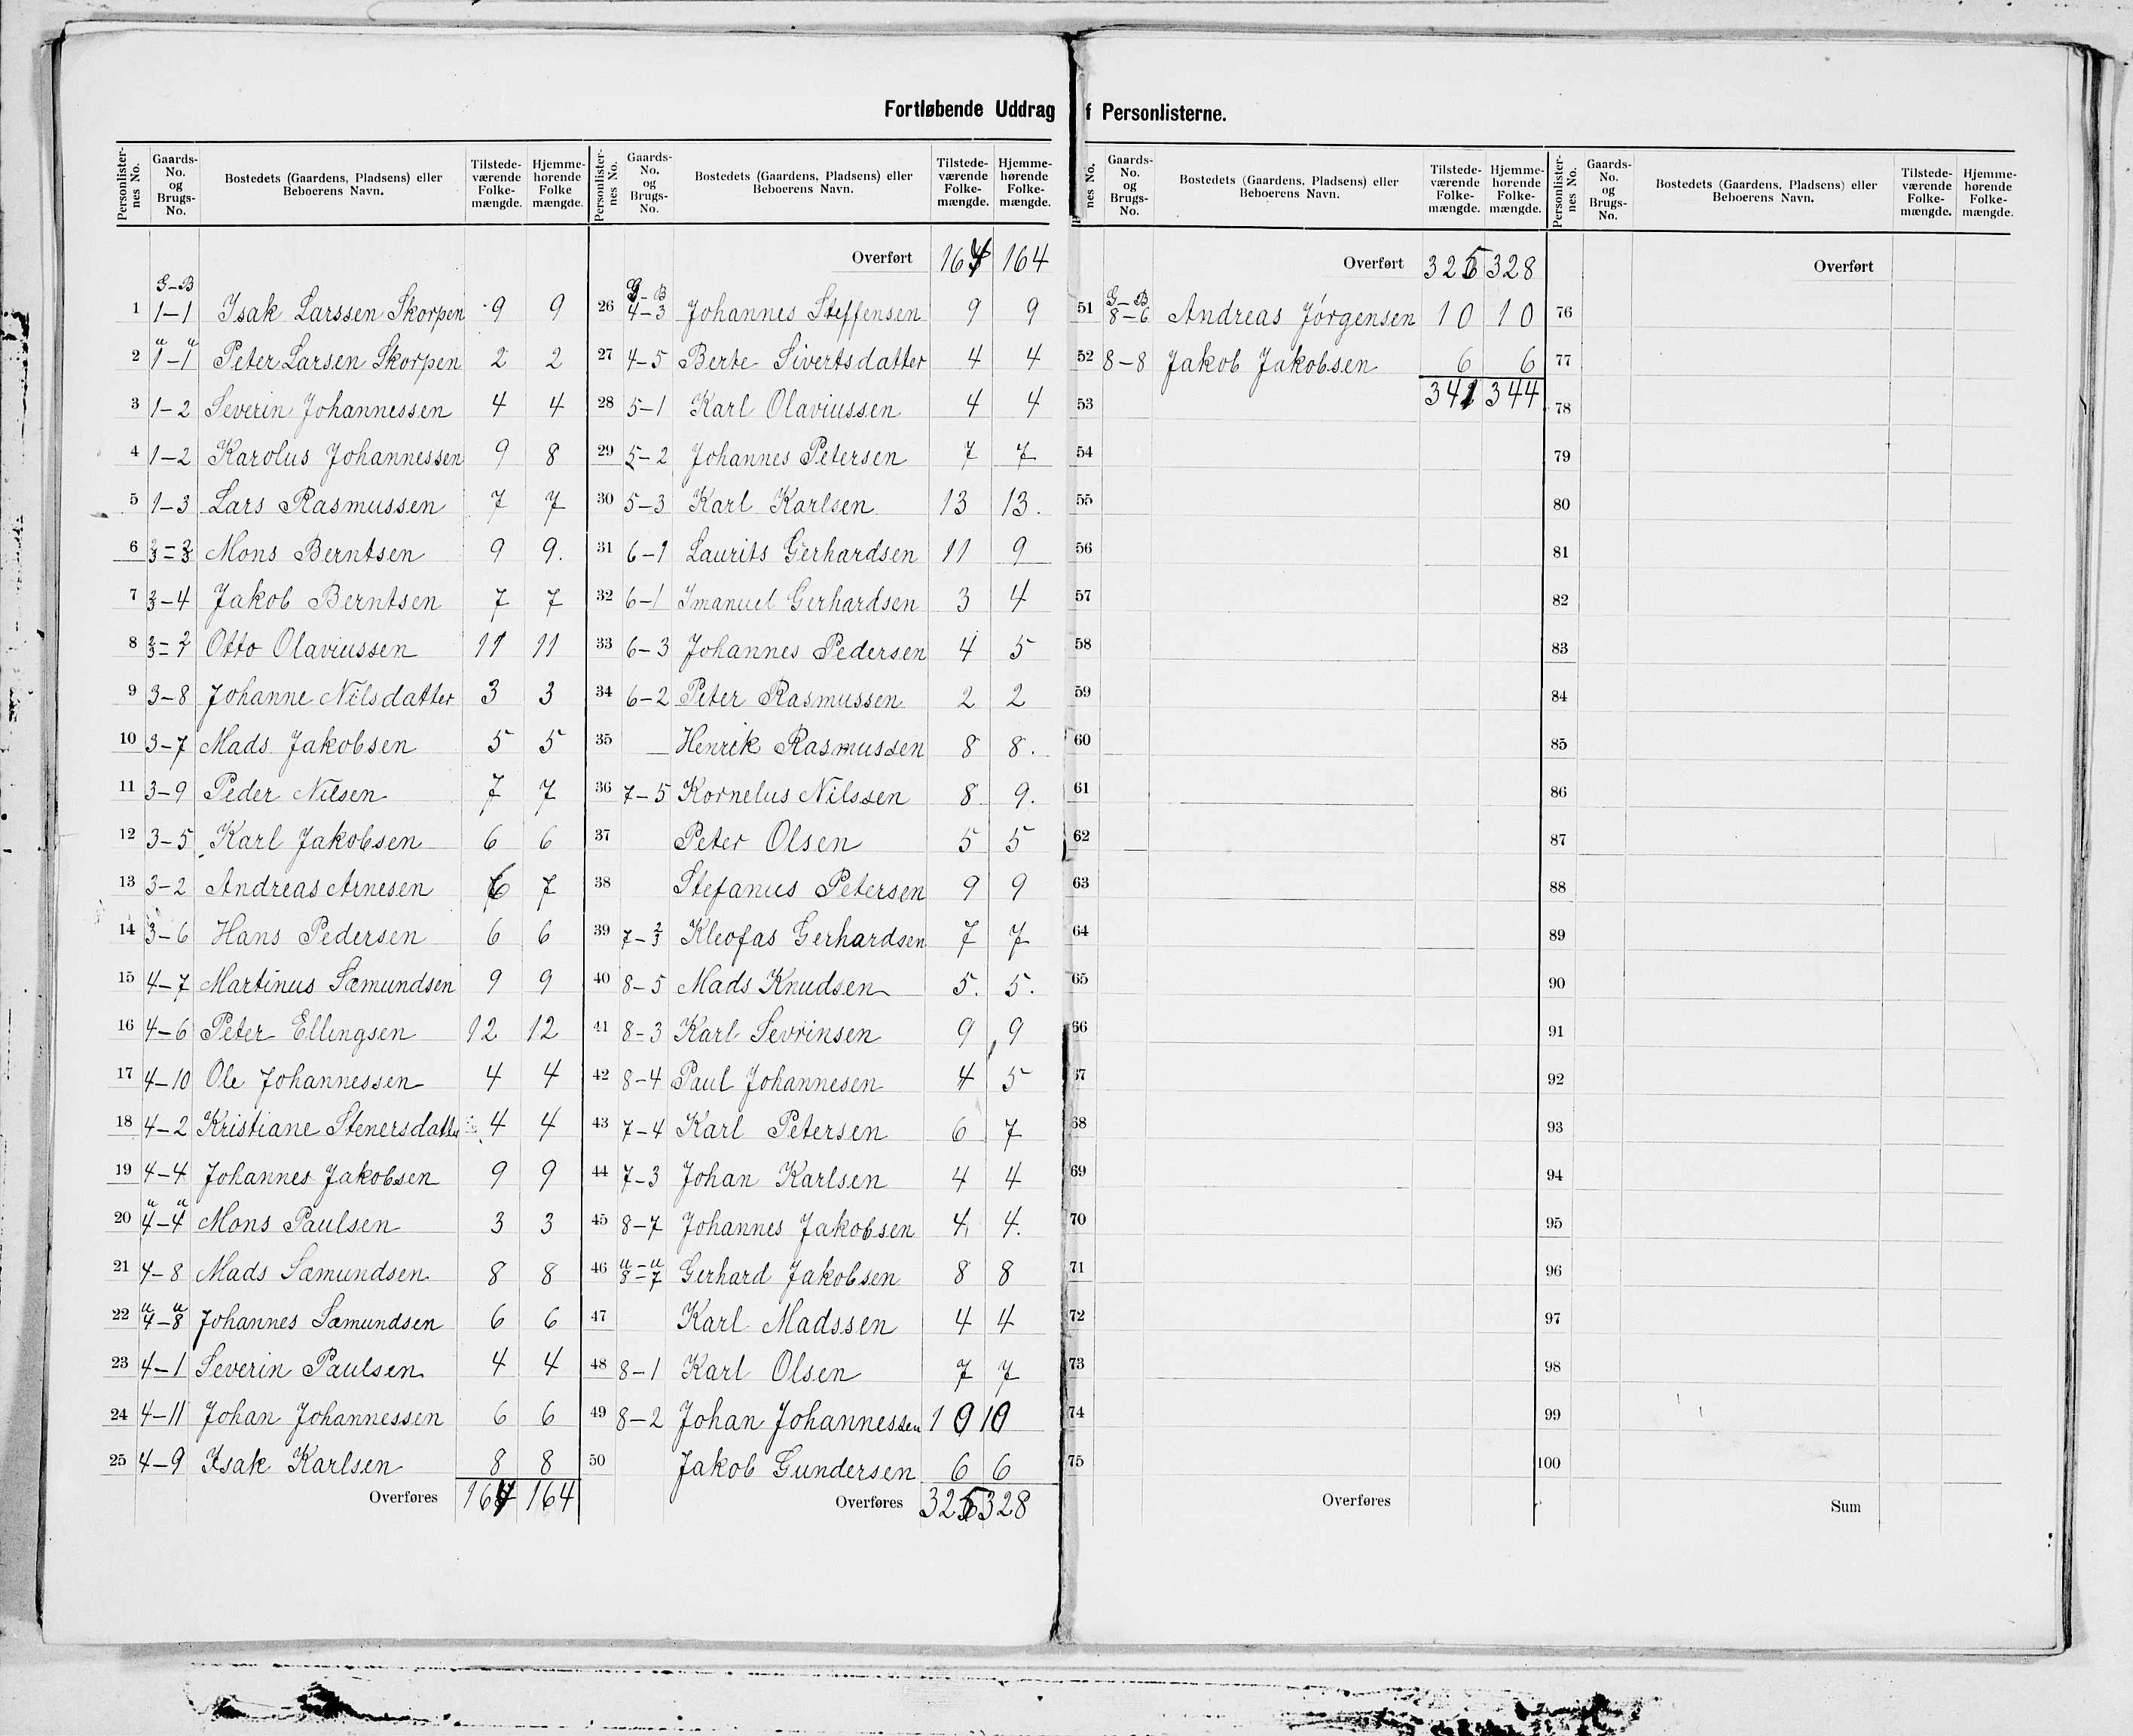 Fortløbende Uddrag f Personlisterne.
Personlister-nes No. Gaards-No. og Brugs-No. Bostedets (Gaardens, Pladsens) eller Beboerens Navn. Tilstede-værende Folke-mængde. Hjemme-hørende Folke mængde.
G-B
1 1-1 Isak Larssen Skorpen 9 9
2 1-1 Peter Larsen Skorpen 2 2
3 1-2 Severin Johannessen 4 4
4 1-2 Karolus Johannessen 9 8
5 1-3 Lars Rasmussen 7 7
6 Mons Berntsen 9 9.
7 3-4 Jakob Berntsen 7 7
8 Otto Olaviussen 11 11
9 3-8 Johanne Nilsdatter 3 3
10 3-7 Mads Jakobsen 5 5
11 3-9 Peder Nilsen 7 7
12 3-5 Karl Jakobsen 6 6
13 3-2 Andreas Arnesen 6 7
14 3-6 Hans Pedersen 6 6
15 4-7 Martinus Sæmundsen 9 9
16 4-6 Peter Ellingsen 12 12
17 4-10 Ole Johannessen 4 4
18 4-2 Kristiane Stenersdatter 4 4
19 4-4 Johannes Jakobsen 9 9
20 4-4 Mons Paulsen 3 3
21 4-8 Mads Sæmundsen 8 8
22 4-8 Johannes Sæmundsen 6 6
23 4-1 Severin Paulsen 4 4
24 4-11 Johan Johannessen 6 6
25 4-9 Isak Karlsen 8 8
Overføres 164 164
Personlister-nes No. Gaards-No. og Brugs-No. Bostedets (Gaardens, Pladsens) eller Beboerens Navn. Tilstede-værende Folke-mængde. Hjemme-hørende Folke-mængde.
Overført 164 164
G-B
26 4-3 Johannes Steffensen 9 9
27 4-5 Berte Sivertsdatter 4 4
28 5-1 Karl Olaviussen 4 4
29 5-2 Johannes Petersen 7 7
30 5-3 Karl Karlsen 13 13.
31 6-1 Laurits Gerhardsen 11 9
32 6-1 Imanuel Gerhardsen 3 4
33 6-3 Johannes Pedersen 4 5
34 6-2 Peter Rasmussen 2 2
35 Henrik Rasmussen 8 8.
36 7-5 Kornelus Nilssen 8 9.
37 Peter Olsen 5 5
38 Stefanus Petersen 9 9
39 7-2/3 Kleofas Gerhardsen 7 7
40 8-5 Mads Knudsen 5. 5.
41 8-3 Karl Sevrinsen 9 9
42 8-4 Paul Johannesen 4 5
43 7-4 Karl Petersen 6 7
44 7-3 Johan Karlsen 4 4
45 8-7 Johannes Jakobsen 4 4.
46 8-7 Gerhard Jakobsen 8 8
47 Karl Madssen 4 4
48 8-1 Karl Olsen 7 7
49 8-2 Johan Johannessen 10 10
50 Jakob Gundersen 6 6
Overføres 325 328
nes No. Gaards-No. og Brugs-No. Bostedets (Gaardens, Pladsens) eller Beboerens Navn. Tilstede-værende Folke-mængde. Hjemme-hørende Folke-mængde.
Overført 325 328
G-B
51 8-6 Andreas Jørgensen 10 10
52 8-8 Jakob Jakobsen 6 6
53 341 344
54
55
56
57
58
59
60
61
62
63
64
65
66
67
68
69
70
71
72
73
74
75
Overføres
Personlister-nes No. Gaards-No. og Brugs-No. Bostedets (Gaardens, Pladsens) eller Beboerens Navn. Tilstede-værende Folke-mængde. Hjemme-hørende Folke-mængde.
Overført
76
77
78
79
80
81
82
83
84
85
86
87
88
89
90
91
92
93
94
95
96
97
98
99
100
Sum